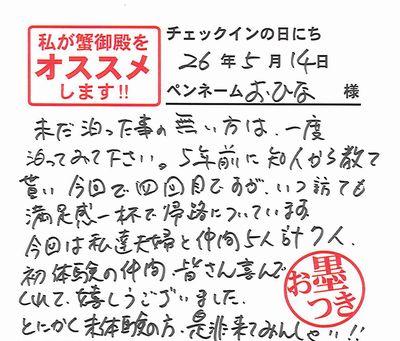 私が蟹御殿を
オススメ
します!!
チェックインの日にち
26年5月14日
ペンネーム お・ひな 様
未だ泊った事の無い方は、一度
泊ってみて下さい。5年前に知人から教て
貰い今回で四回目ですが、いつ訪ても
満足感一杯で帰路についています。
今回は私達夫婦と仲間5人計7人。
初体験の仲間、皆さん喜んで
くれて、嬉しうございました。
とにかく未体験の方、是非来てみんしゃい!!
お墨つき